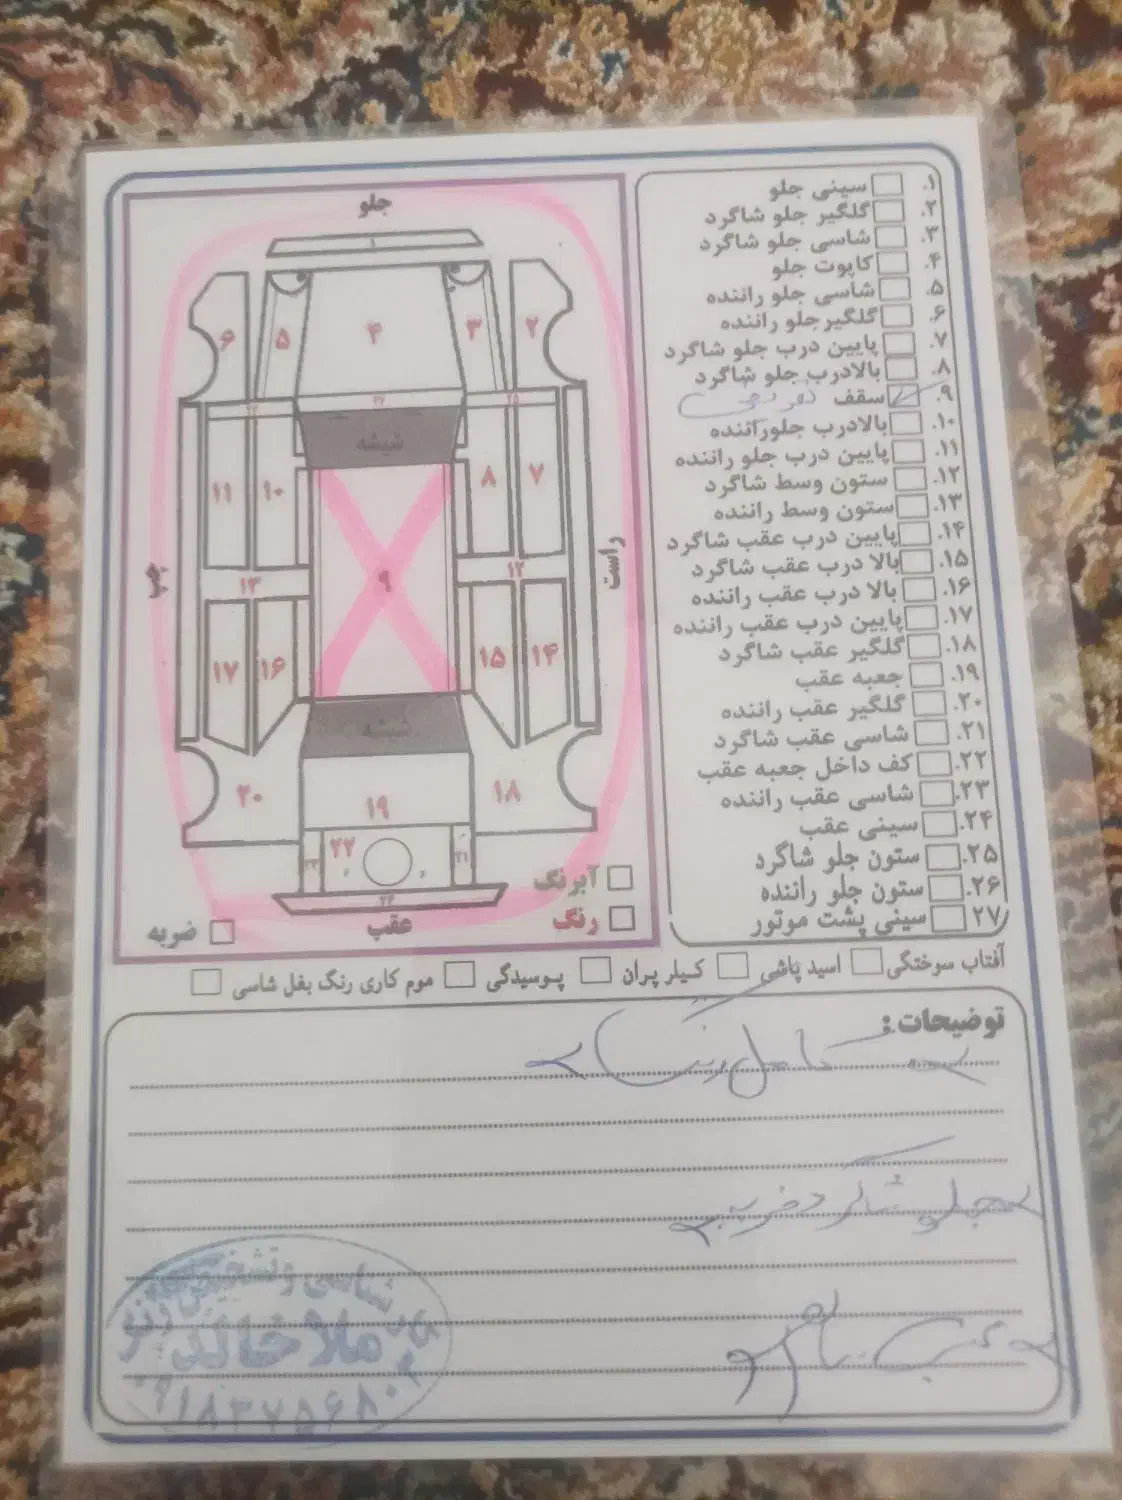 ۱. سینی جلو
۲. گلگیر جلو شاگرد
۳. شاسی جلو شاگرد
۴. کاپوت جلو
۵. شاسی جلو راننده
۶. گلگیرجلو راننده
۷. پایین درب جلو شاگرد
۸. بالادرب جلو شاگرد
۹. سقف
۱۰. بالادرب جلوراننده
۱۱. پایین درب جلو راننده
۱۲. ستون وسط شاگرد
۱۳. ستون وسط راننده
۱۴. پایین درب عقب شاگرد
۱۵. بالا درب عقب شاگرد
۱۶. بالا درب عقب راننده
۱۷. پایین درب عقب راننده
۱۸. گلگیر عقب شاگرد
۱۹. جعبه عقب
۲۰. گلگیر عقب راننده
۲۱. شاسی عقب شاگرد
۲۲. کف داخل جعبه عقب
۲۳. شاسی عقب راننده
۲۴. سینی عقب
۲۵. ستون جلو شاگرد
۲۶. ستون جلو راننده
۲۷ سینی پشت موتور
جلو
۱
۲ ۳ ۴ ۵ ۶
۲۵ ۲۷ ۲۶
شیشه
۷ ۸ ۱۰ ۱۱
راست ۹ چپ
۱۲ ۱۳
۱۴ ۱۵ ۱۶ ۱۷
شیشه
۱۸ ۱۹ ۲۰
۲۱ ۲۲ ۲۳
۲۴
عقب
آبرنگ
رنگ
ضربه
آفتاب سوختگی اسید پاشی کیلر پران پوسیدگی موم کاری رنگ بغل شاسی
توضیحات:
کامل رنگ
جلو شاگرد ضربه
عقب
ملا خالد